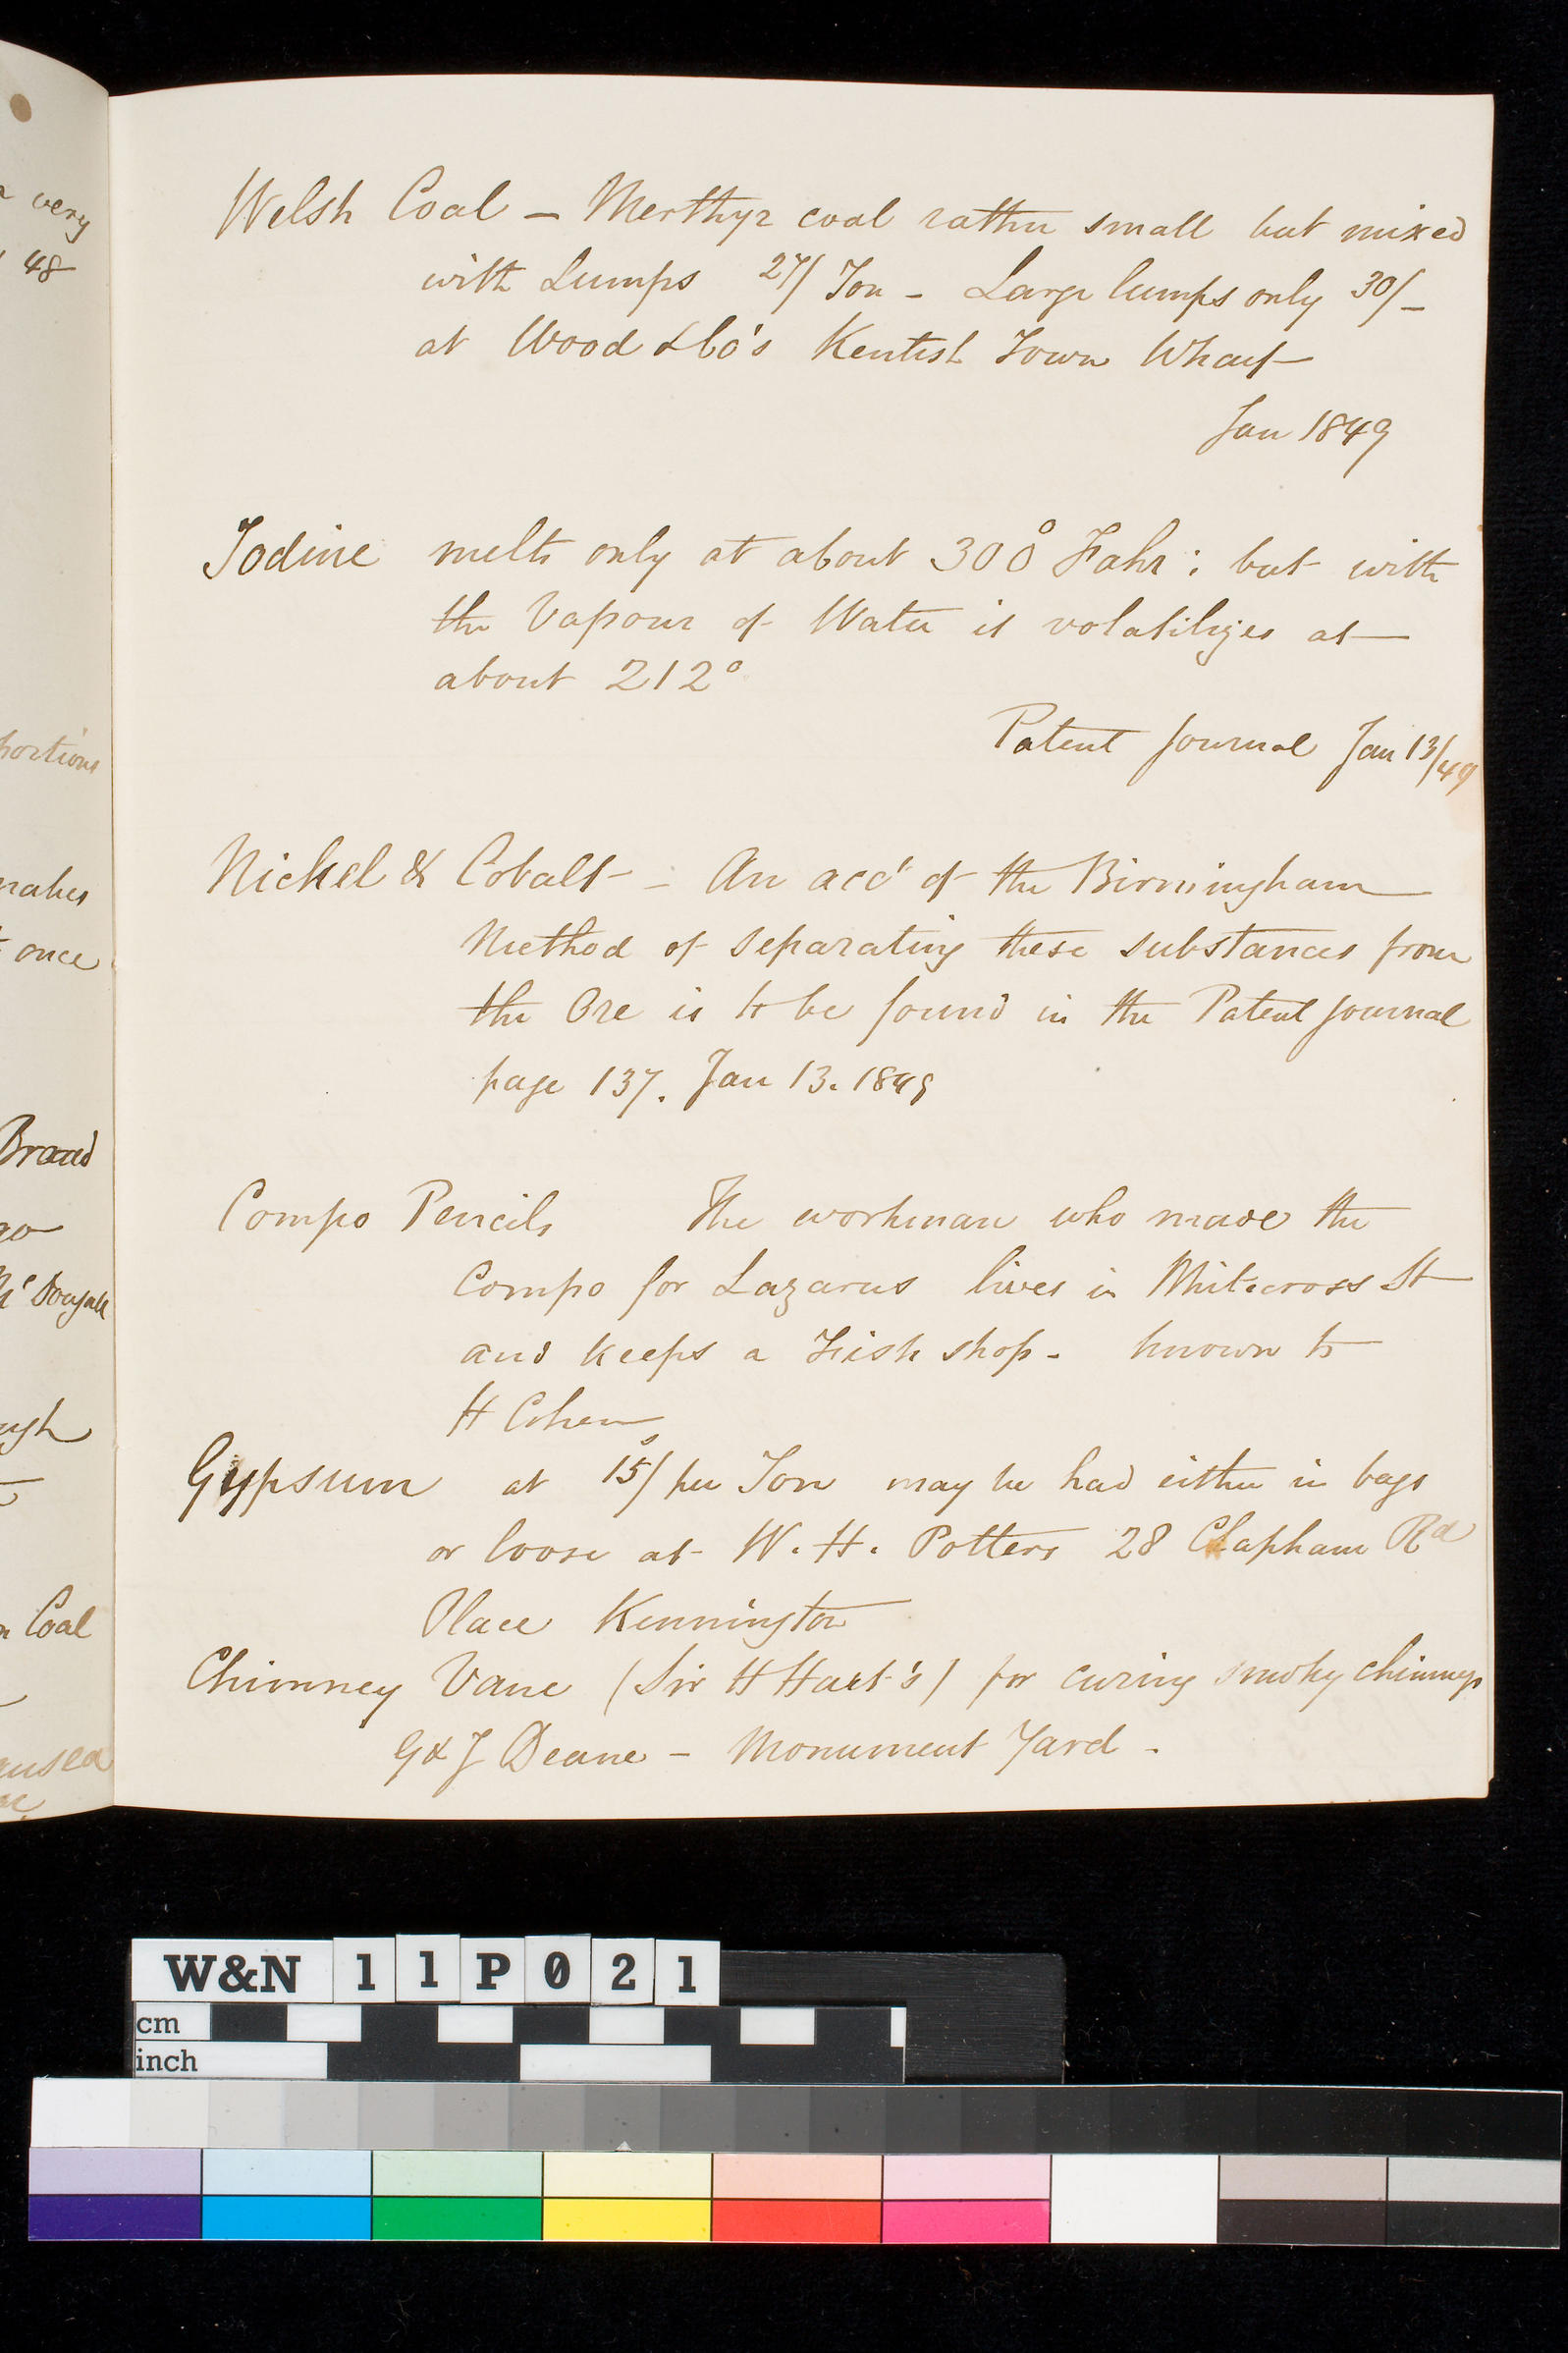 very
48
Welsh Coal – Merthyr coal rather small but mixed
with Lumps 27/ Ton – Large lumps only 30/–
at Wood & Co's Kentish Town Wharf
Jan 1849
Iodine melts only at about 300° Fahr: but with
the Vapour of Water it volatilizes at
about 212°
Patent Journal Jan 13/49
portions
makes
once
Nickel & Cobalt – An acct of the Birmingham
Method of separating these substances from
the Ore is to be found in the Patent Journal
page 137. Jan 13. 1849
Compo Pencils The workman who made the
Compo for Lazarus lives in Whitecross St
and keeps a Fish shop – known to
H Cohen
Gypsum at 15s/ per Ton may be had either in bags
or loose at W. H. Potters 28 Clapham Rd
Place Kennington
Coal
Chimney Vane (Sir H Hart's) for curing smoky chimneys
G & J Deane – Monument Yard –
W&N 11P021
cm
inch